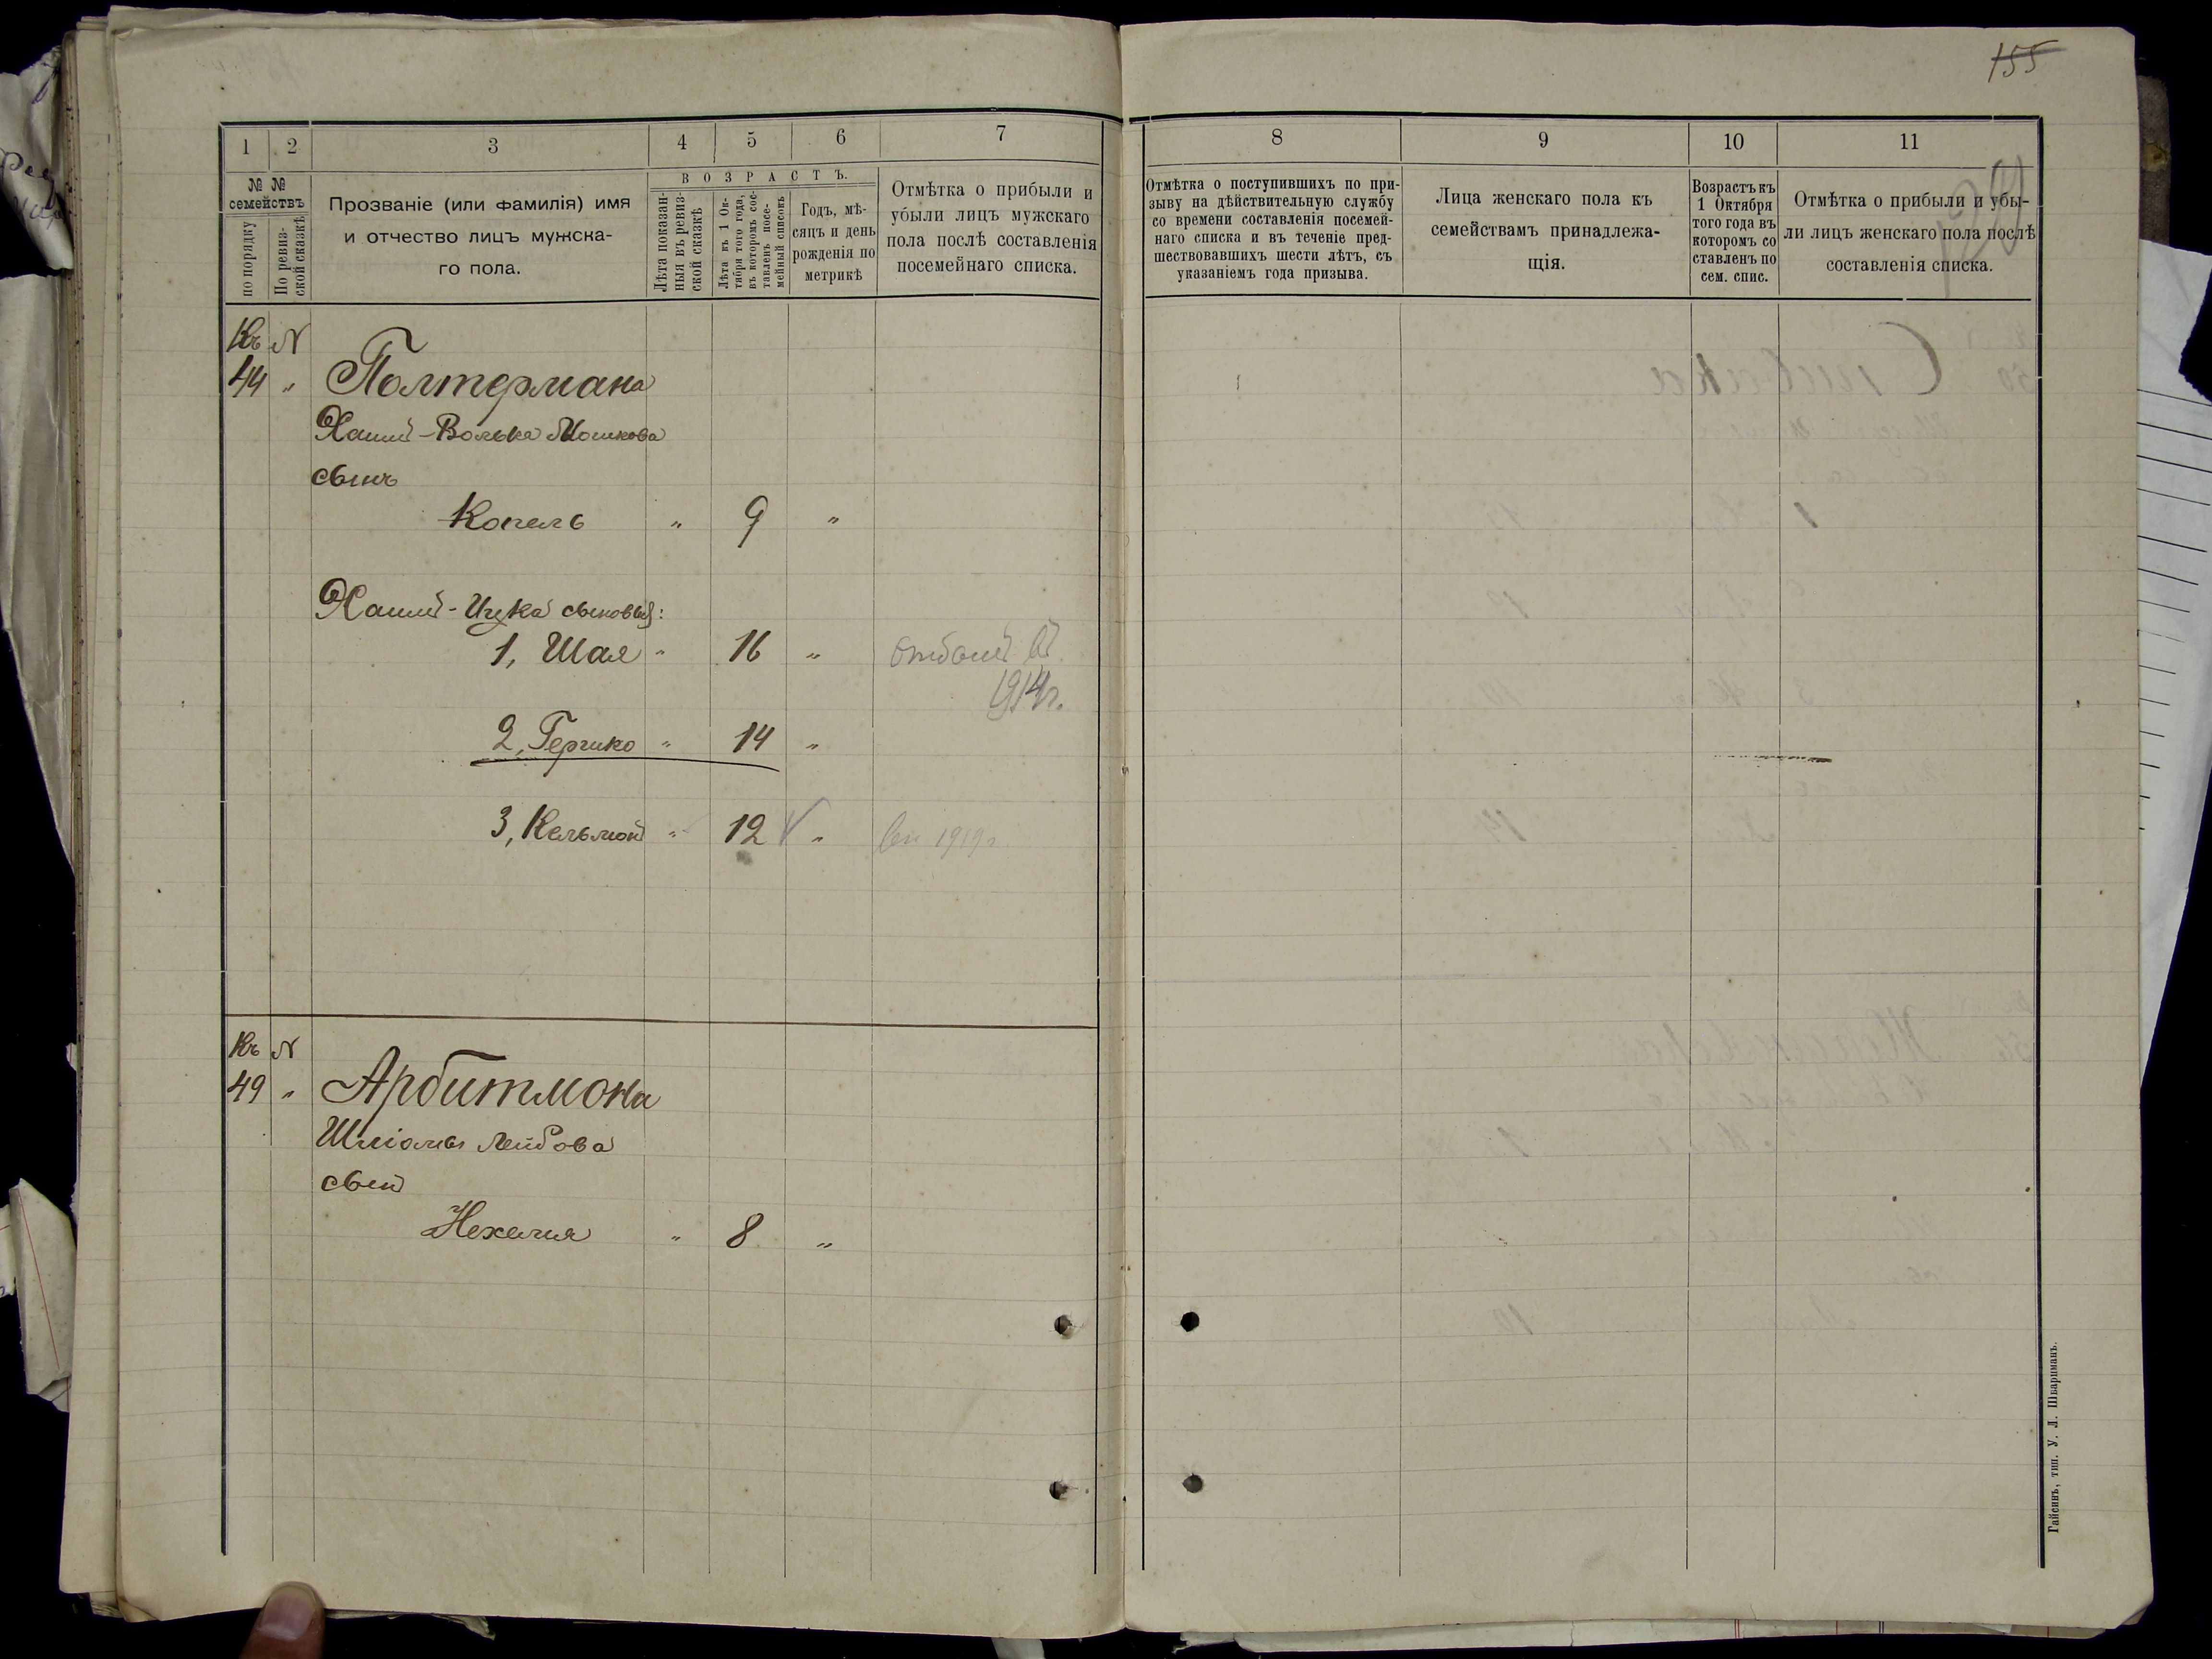 155
1 2 3 4 5 6 7
№ №
семействъ
по порядку
По ревиз-
ской сказкѣ
Прозваніе (или фамилія) имя
и отчество лицъ мужска-
го пола.
ВОЗРАСТЪ.
Лѣта показан-
ныя въ ревиз-
ской сказкѣ
Лѣта къ 1 Ок-
тября того года,
въ которомъ сос-
тавленъ посе-
мейный списокъ
Годъ, мѣ-
сяцъ и день
рожденія по
метрикѣ
Отмѣтка о прибыли и
убыли лицъ мужскаго
пола послѣ составленія
посемейнаго списка.
Къ N
44 " Полтермана
Хаим-Волька Мошкова
сынъ
Копель " 9 "
Хаим-Ицка сыновья:
1, Шая " 16 "
1914г.
2, Гершко " 14 "
3, Кельмон " 12 V " 1919г.
Къ N
49 " Арбитмана
Шліомы Лейбова
сын
Нехемия " 8 "
8 9 10 11
Отмѣтка о поступившихъ по при-
зыву на дѣйствительную службу
со времени составленія посемей-
наго списка и въ теченіе пред-
шествовавшихъ шести лѣтъ, съ
указаніемъ года призыва.
Лица женскаго пола къ
семействамъ принадлежа-
щія.
Возрастъ къ
1 Октября
того года въ
которомъ со
ставленъ по
сем. спис.
Отмѣтка о прибыли и убы-
ли лицъ женскаго пола послѣ
составленія списка.
Гайсинъ, тип. У. Л. Шварцманъ.